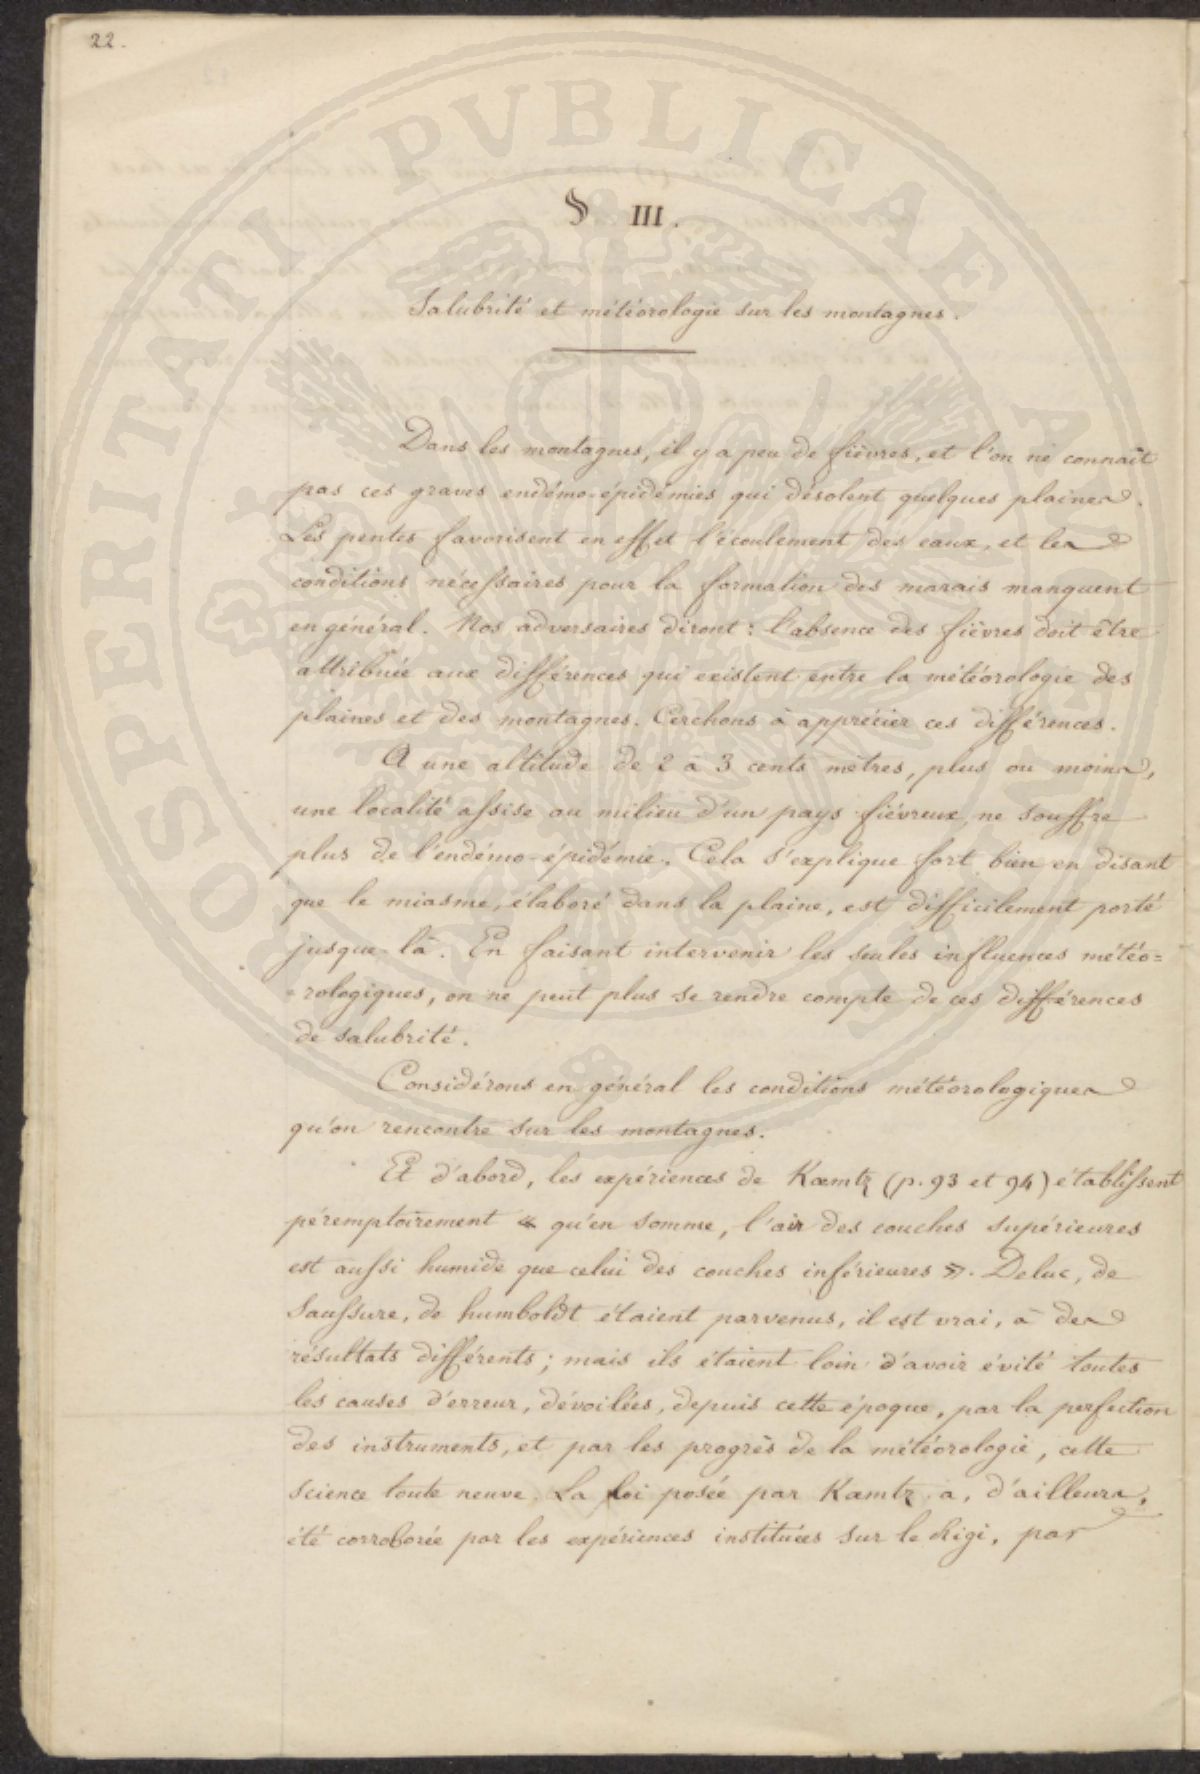 22.
§ III.
Salubrité et météorologie sur les montagnes.
Dans les montagnes, il y a peu de fièvres, et l'on ne connaît
pas ces graves endémo-épidémies qui désolent quelques plaines.
Les pentes favorisent en effet l'écoulement des eaux, et les
conditions nécessaires pour la formation des marais manquent
en général. Nos adversaires diront: l'absence des fièvres doit être
attribuée aux différences qui existent entre la météorologie des
plaines et des montagnes. Cerchons à apprécier ces différences.
A une altitude de 2 à 3 cents mètres, plus ou moins,
une localité assise au milieu d'un pays fiévreux, ne souffre
plus de l'endémo-épidémie. Cela s'explique fort bien en disant
que le miasme, élaboré dans la plaine, est difficilement porté
jusque-là. En faisant intervenir les seules influences météo=
=rologiques, on ne peut plus se rendre compte de ces différences
de salubrité.
Considérons en général les conditions météorologiques
qu'on rencontre sur les montagnes.
Et d'abord, les expériences de Kæmtz (p. 93 et 94) établissent
péremptoirement « qu'en somme, l'air des couches supérieures
est aussi humide que celui des couches inférieures ». Deluc, de
Saussure, de humboldt étaient parvenus, il est vrai, à des
résultats différents; mais ils étaient loin d'avoir évité toutes
les causes d'erreur, dévoilées, depuis cette époque, par la perfection
des instruments, et par les progrès de la météorologie, cette
science toute neuve. La loi posée par Kæmtz a, d'ailleurs,
été corroborée par les expériences instituées sur le Rigi, par
PROSPERITATI PVBLICAE